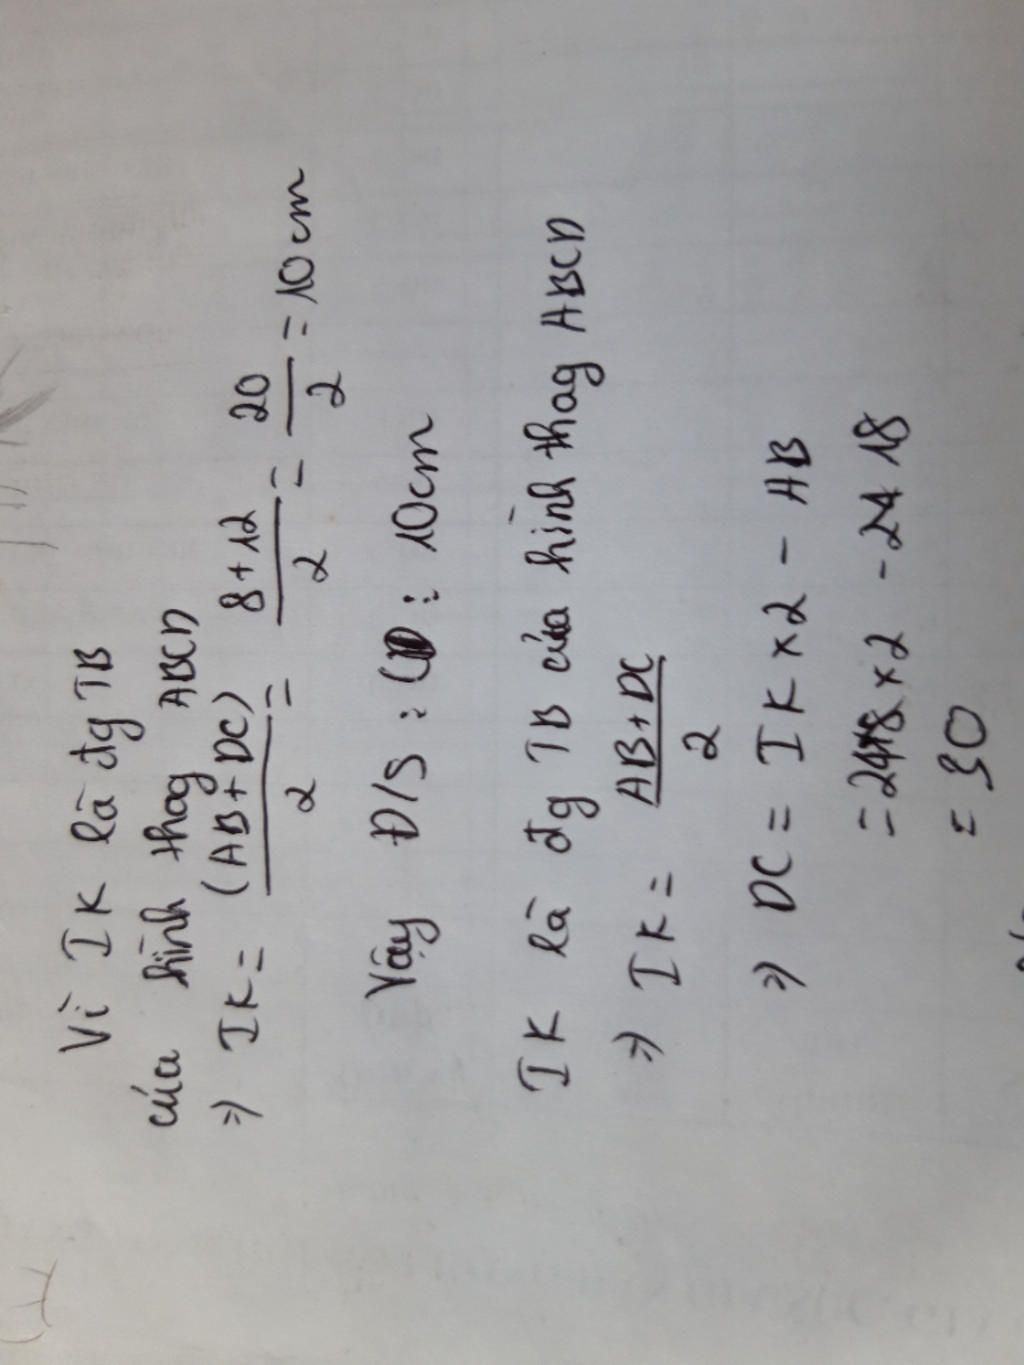 Vì IK là đg TB
của hình thag ABCD
=> IK = (AB+DC)/2 = 8+12/2 = 20/2 = 10cm
Vậy Đ/S : : 10cm
IK là đg TB của hình thag ABCD
=> IK = AB+DC/2
=> DC = IK x 2 - AB
= 24 x 2 - 18
= 30